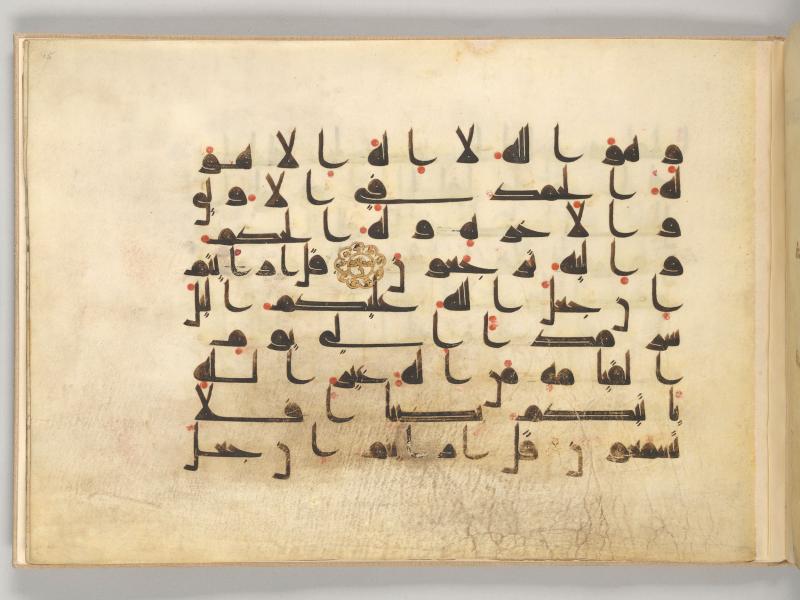 وهو الله لا اله الا هو
له الحمد فى الاولى
والاخره وله الحكم
واليه ترجعون قل ارايتم
ان جعل الله عليكم اليل
سرمدا الى يوم
القيمه من اله غير الله
ياتيكم بضيا افلا
تسمعون قل ارايتم ان جعل